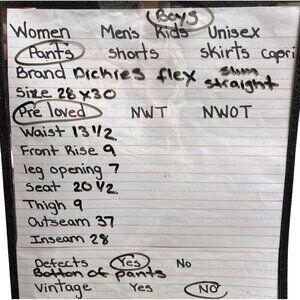 Boys
Women Men's Kids Unisex
Pants shorts skirts capri
Brand Dickies flex slim straight
Size 28x30
Pre loved NWT NWOT
Waist 13 1/2
Front Rise 9
leg opening 7
Seat 20 1/2
Thigh 9
Outseam 37
Inseam 28
Defects Yes No
Bottom of pants
Vintage Yes NO